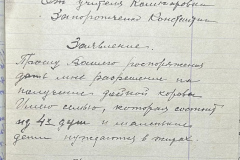 От учителя Комаровки
Запорожченка Константина
Заявление.
Прошу Вашего распоряжения
дать мне разрешение на
получение дойной коровы
Имею семью, которая состоит
из 4х душ и маленькие
дети нуждаются в жирах.